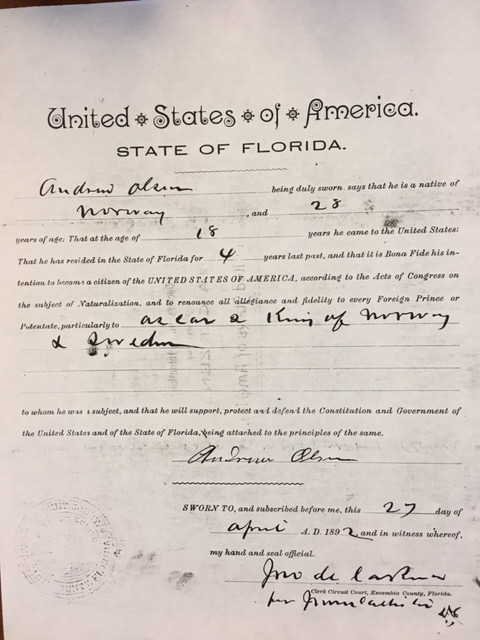 United States of America.
STATE OF FLORIDA.
Andrew Olsen being duly sworn says that he is a native of
Norway, and 28
years of age: That at the age of 18 years he came to the United States:
That he has resided in the State of Florida for 4 years last past, and that it is Bona Fide his in-
tention to become a citizen of the UNITED STATES OF AMERICA, according to the Acts of Congress on
the subject of Naturalization, and to renounce all allegiance and fidelity to every Foreign Prince or
Potentate, particularly to Oscar 2 King of Norway
& Sweden
to whom he was a subject, and that he will support, protect and defend the Constitution and Government of
the United States and of the State of Florida, being attached to the principles of the same.
Andrew Olsen
SWORN TO, and subscribed before me, this 27 day of
April A. D. 1892 and in witness whereof,
my hand and seal official.
Clerk Circuit Court, Escambia County, Florida.